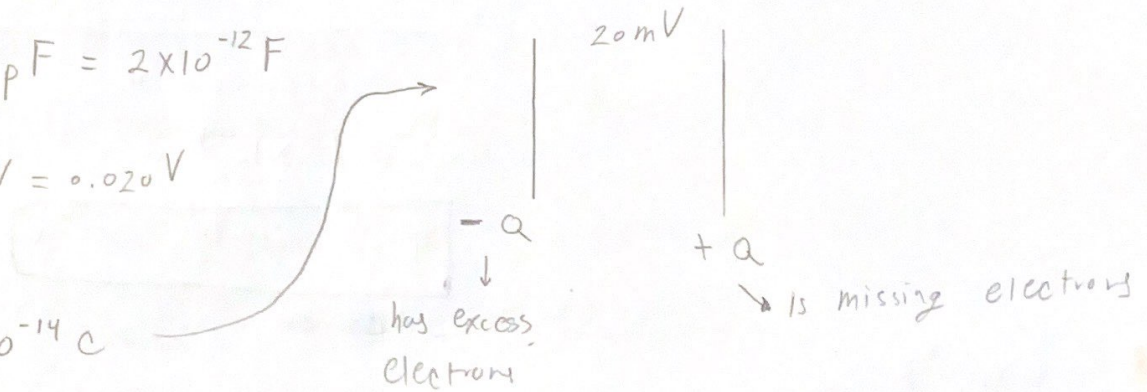 pF = 2x10^-12 F
20mV
V = 0.020 V
- Q
+ Q
0^-14 C
has excess
electrons
is missing electrons